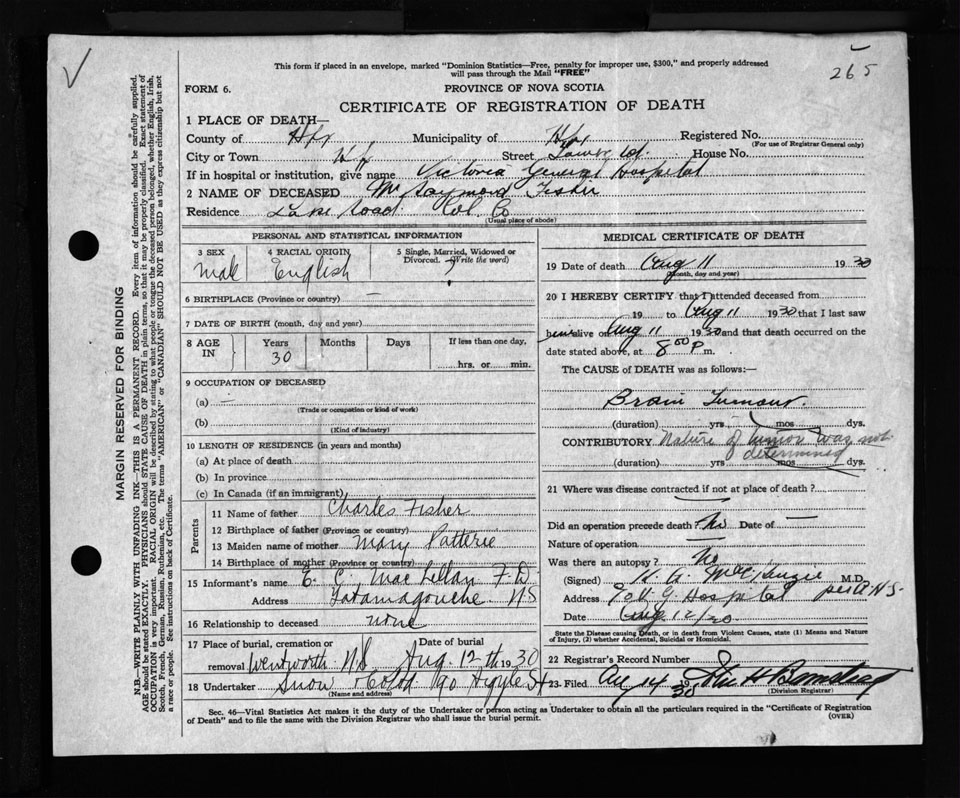 265
This form if placed in an envelope, marked "Dominion Statistics—Free, penalty for improper use, $300," and properly addressed
will pass through the Mail "FREE"
FORM 6.
PROVINCE OF NOVA SCOTIA
CERTIFICATE OF REGISTRATION OF DEATH
1 PLACE OF DEATH—
County of Hfx Municipality of Hfx Registered No.
(For use of Registrar General only)
City or Town Hfx Street Tower Rd. House No.
If in hospital or institution, give name Victoria General Hospital
2 NAME OF DECEASED Mr Raymond Fisher
Residence Lake Road Col. Co
(Usual place of abode)
PERSONAL AND STATISTICAL INFORMATION
3 SEX 4 RACIAL ORIGIN 5 Single, Married, Widowed or
Divorced. (Write the word)
Male English
6 BIRTHPLACE (Province or country)
7 DATE OF BIRTH (month, day and year)
8 AGE IN Years Months Days If less than one day,
30 hrs. or min.
9 OCCUPATION OF DECEASED
(a) —
(Trade or occupation or kind of work)
(b)
(Kind of industry)
10 LENGTH OF RESIDENCE (in years and months)
(a) At place of death
(b) In province
(c) In Canada (if an immigrant)
Parents
11 Name of father Charles Fisher
12 Birthplace of father (Province or country)
13 Maiden name of mother Mary
14 Birthplace of mother (Province or country)
15 Informant's name E. C. MacLellan F.D.
Address Tatamagouche NS
16 Relationship to deceased none
17 Place of burial, cremation or Date of burial
removal Wentworth NS. Aug. 12th 1930
18 Undertaker Snow & Co Ltd 90 Argyle St
(Name and address)
MEDICAL CERTIFICATE OF DEATH
19 Date of death Aug 11 1930
(Month, day and year)
20 I HEREBY CERTIFY that I attended deceased from
19 to Aug 11 1930 that I last saw
him alive on Aug 11 1930 and that death occurred on
date stated above, at 8 00 P m.
The CAUSE of DEATH was as follows:—
Brain Tumour.
(duration) yrs mos dys.
CONTRIBUTORY Nature of tumor was not
determined
(duration) yrs mos dys.
21 Where was disease contracted if not at place of death?
Did an operation precede death? No Date of —
Nature of operation —
Was there an autopsy? No
(Signed) K. A. MacKenzie M.D.
Address Hospital
Date Aug 12/30
State the Disease causing Death, or in death from Violent Causes, state (1) Means and Nature
of Injury, (2) whether Accidental, Suicidal or Homicidal.
22 Registrar's Record Number
23 Filed Au 14 1930
(Division Registrar)
Sec. 46—Vital Statistics Act makes it the duty of the Undertaker or person acting as Undertaker to obtain all the particulars required in the "Certificate of Registration
of Death" and to file the same with the Division Registrar who shall issue the burial permit.
(OVER)
MARGIN RESERVED FOR BINDING
N.B.—WRITE PLAINLY WITH UNFADING INK—THIS IS A PERMANENT RECORD. Every item of information should be carefully supplied.
AGE should be stated EXACTLY. PHYSICIANS should STATE CAUSE OF DEATH in plain terms, so that it may be properly classified. Exact statement of
OCCUPATION is very important. RACIAL ORIGIN will be described by stating to what people or tongue the deceased person belonged, whether English, Irish,
Scotch, French, German, Russian, Ruthenian, etc. The terms "AMERICAN" or "CANADIAN" SHOULD NOT BE USED as they express citizenship but not
a race or people. See instructions on back of Certificate.